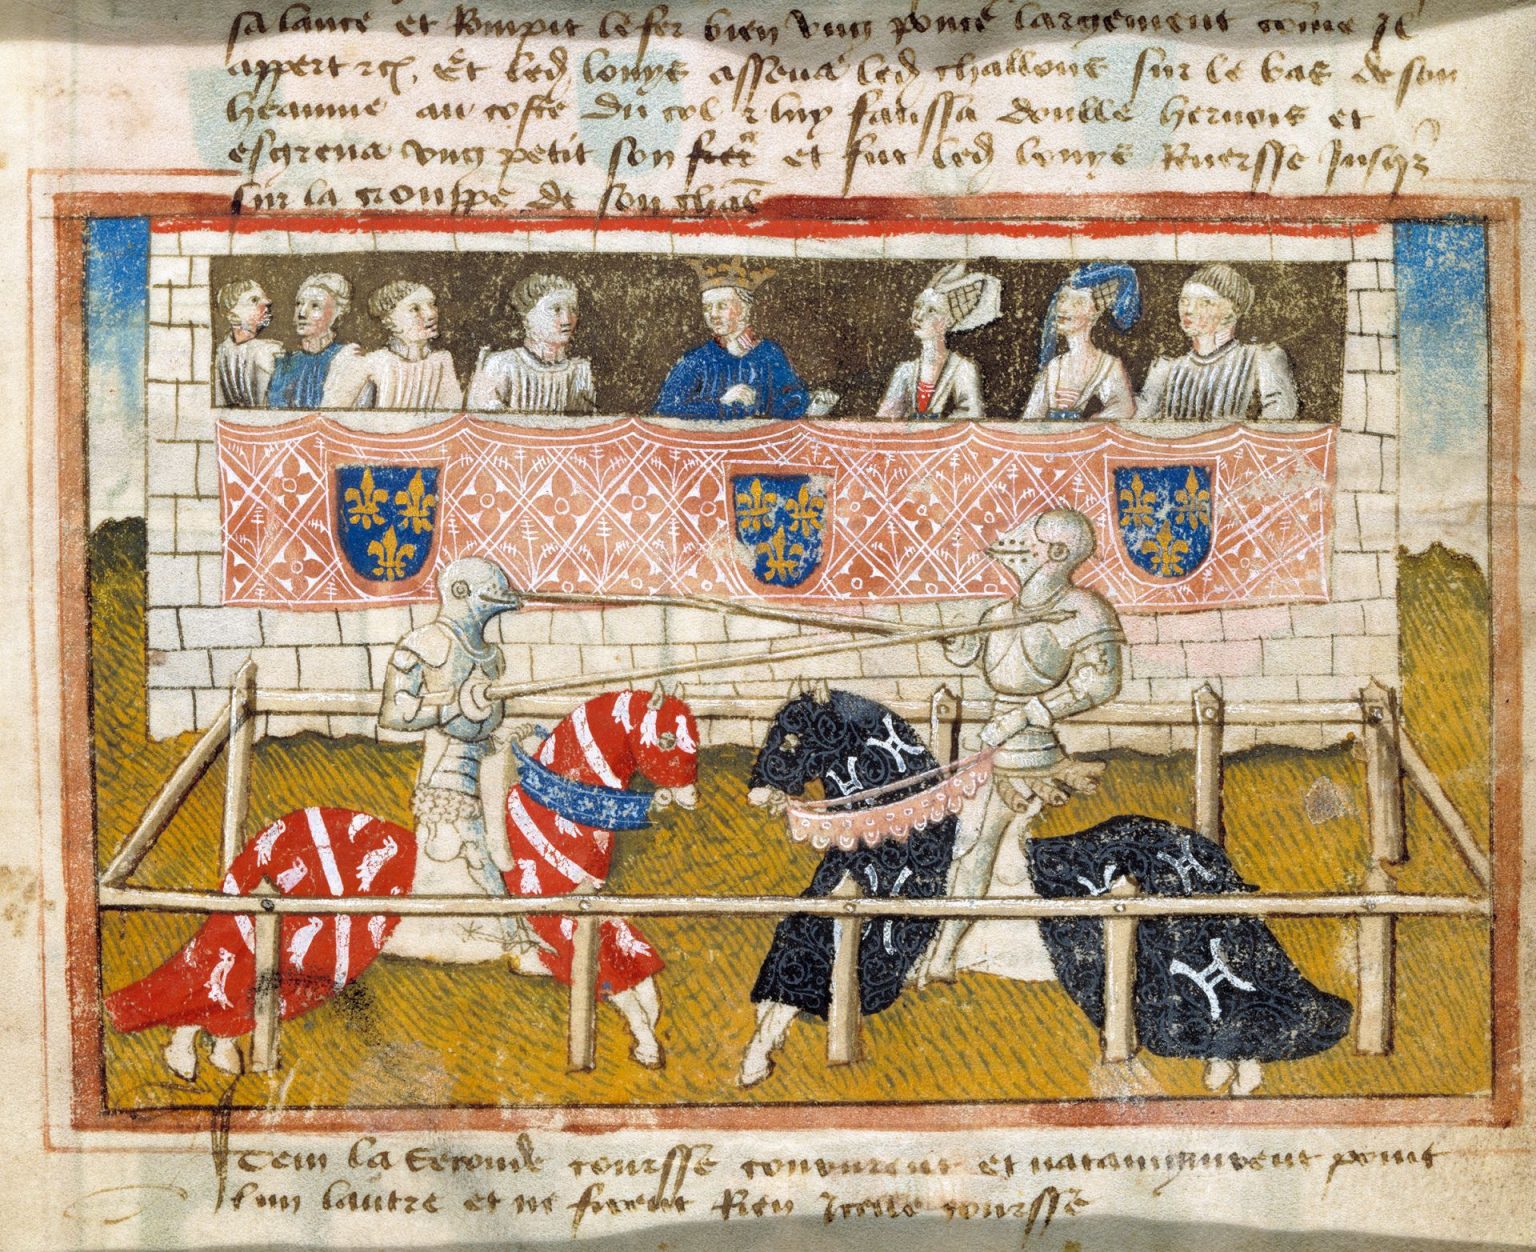 sa lance et Rompit le fer bien ung poucé largement cõme Il
appert rc̃. Et led̃ louys assena led̃ challons sur le bas de son
heaume au coste du col & luy faussa double hernois et
esgrena ung petit son fer et fut led̃ louys Renersse Jusq̃
sur la crouppe de son chãl
Item la seconde coursse coururent et natanignirent point
lun lautre et ne firent Rien Icelle coursse